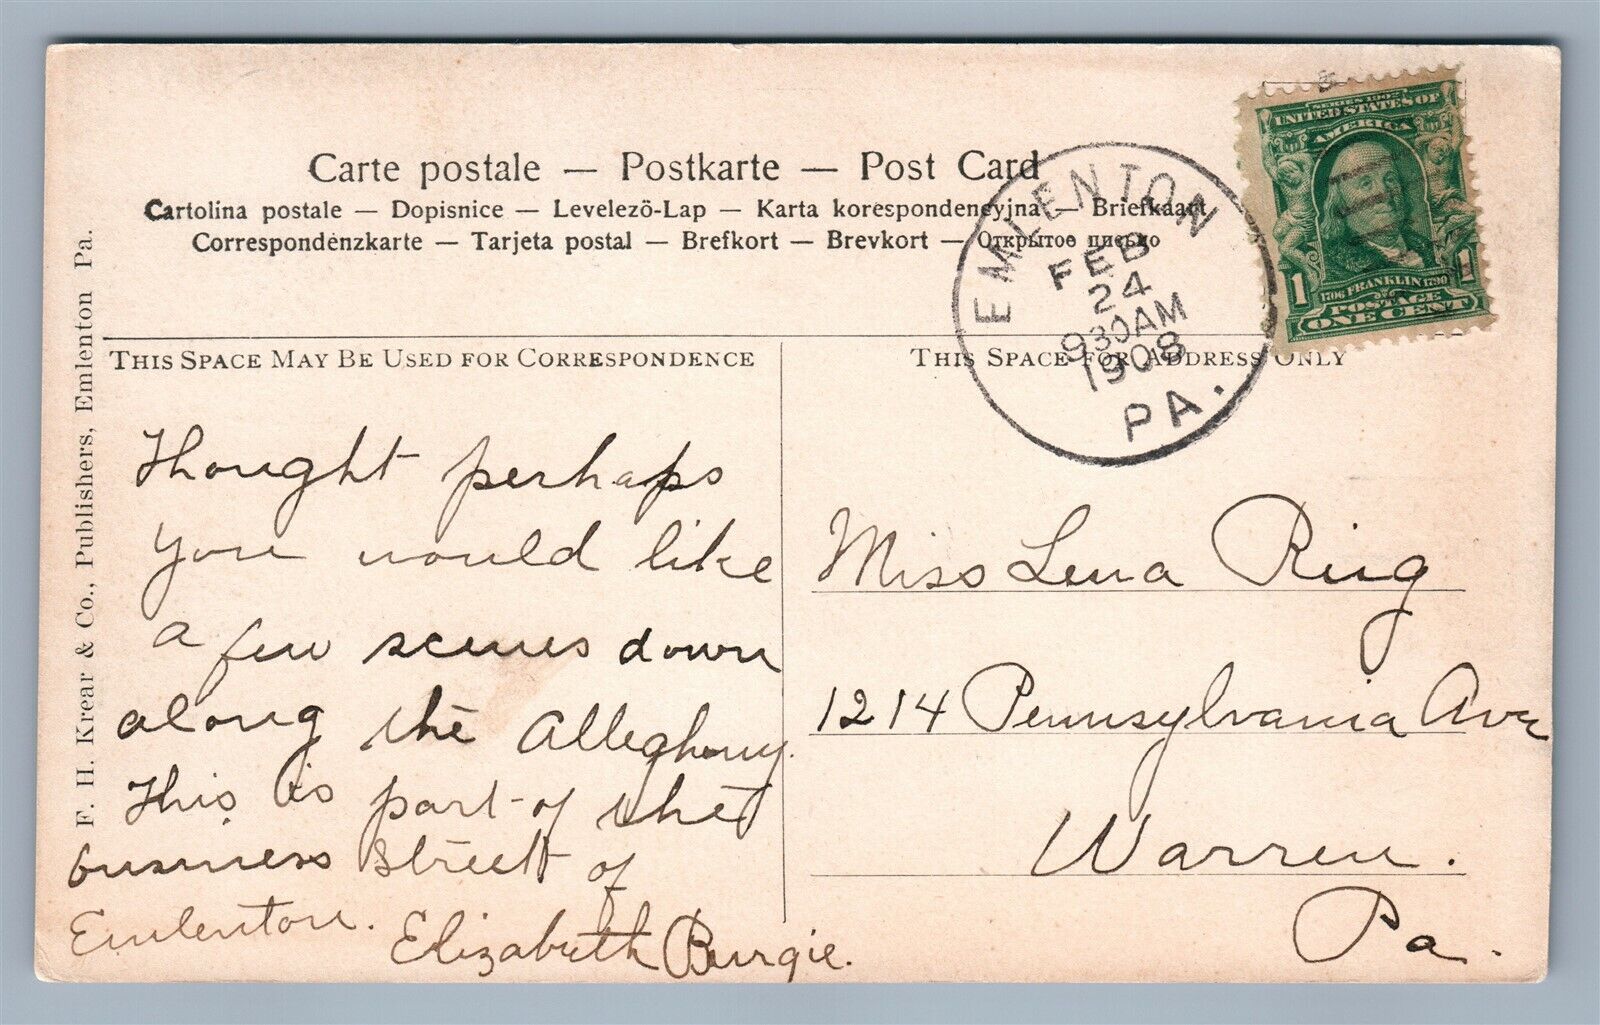 Carte postale — Postkarte — Post Card
Cartolina postale — Dopisnice — Levelezö-Lap — Karta korespondencyjna — Briefkaart
Correspondenzkarte — Tarjeta postal — Brefkort — Brevkort — Открытое письмо
SERIES 1902
UNITED STATES OF
AMERICA
1706 FRANKLIN 1790
1 1
POSTAGE
ONE CENT
EMLENTON
FEB
24
930AM
1908
PA.
F. H. Krear & Co., Publishers, Emlenton Pa.
THIS SPACE MAY BE USED FOR CORRESPONDENCE
Thought perhaps
you would like
a few scenes down
along the Allegheny.
This is part of the
business street of
Emlenton. Elizabeth Burgie.
THIS SPACE FOR ADDRESS ONLY
Miss Lena Ring
1214 Pennsylvania Ave
Warren.
Pa.